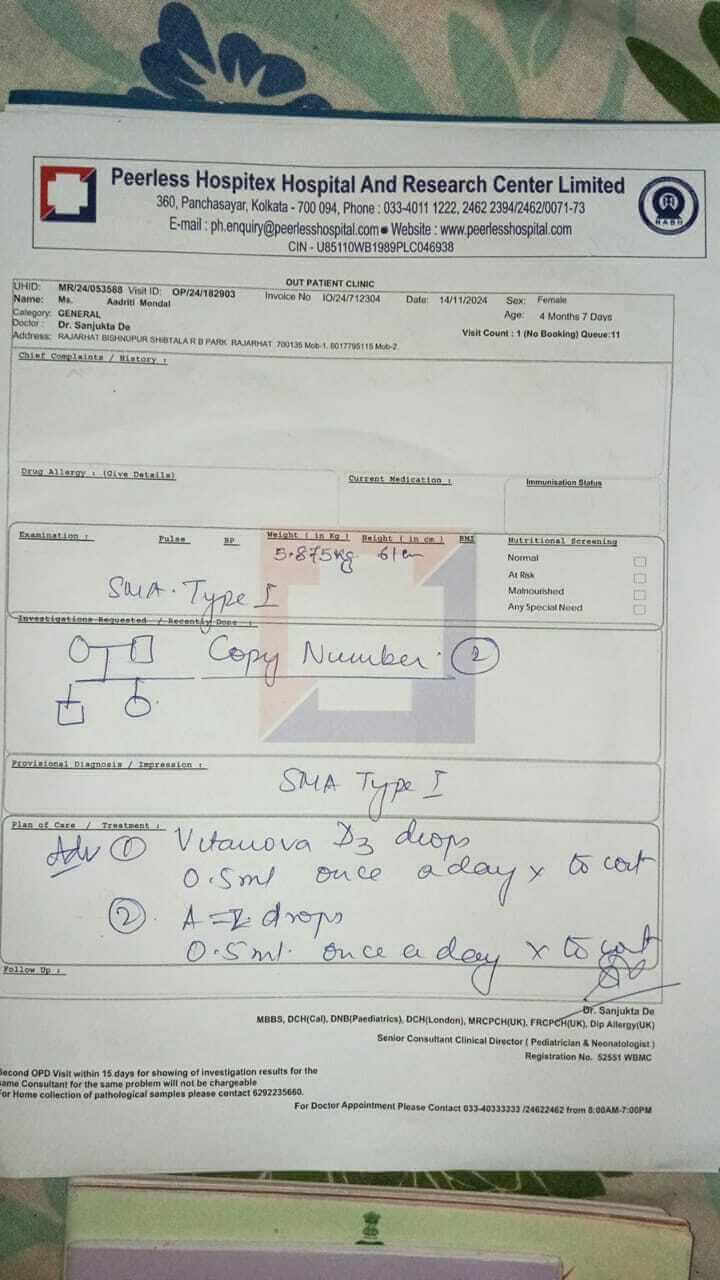 Peerless Hospitex Hospital And Research Center Limited
360, Panchasayar, Kolkata - 700 094, Phone : 033-4011 1222, 2462 2394/2462/0071-73
E-mail : ph.enquiry@peerlesshospital.com ● Website : www.peerlesshospital.com
CIN - U85110WB1989PLC046938
NABH
OUT PATIENT CLINIC
UHID: MR/24/053588 Visit ID: OP/24/182903 Invoice No IO/24/712304 Date: 14/11/2024 Sex: Female
Name: Ms. Aadriti Mondal Age: 4 Months 7 Days
Category: GENERAL
Doctor : Dr. Sanjukta De Visit Count : 1 (No Booking) Queue:11
Address: RAJARHAT BISHNUPUR SHIBTALA R B PARK RAJARHAT 700135 Mob-1. 8017795115 Mob-2.
Chief Complaints / History :
Drug Allergy : (Give Details) Current Medication : Immunisation Status
Examination : Pulse BP Weight ( in Kg ) Height ( in cm ) BMI Nutritional Screening
5.875kg 61cm
Normal
At Risk
Malnourished
Any Special Need
SMA. Type I
Investigations Requested / Recently Done :
Copy Number. 2
Provisional Diagnosis / Impression :
SMA Type I
Plan of Care / Treatment :
Adv 1 Vitanova D3 drops
0.5ml once a day x to cont
2. A-Z drops
0.5ml. once a day x to cont
Follow Up :
Dr. Sanjukta De
MBBS, DCH(Cal), DNB(Paediatrics), DCH(London), MRCPCH(UK), FRCPCH(UK), Dip Allergy(UK)
Senior Consultant Clinical Director ( Pediatrician & Neonatologist )
Registration No. 52551 WBMC
Second OPD Visit within 15 days for showing of investigation results for the
same Consultant for the same problem will not be chargeable
For Home collection of pathological samples please contact 6292235660.
For Doctor Appointment Please Contact 033-40333333 /24622462 from 8:00AM-7:00PM